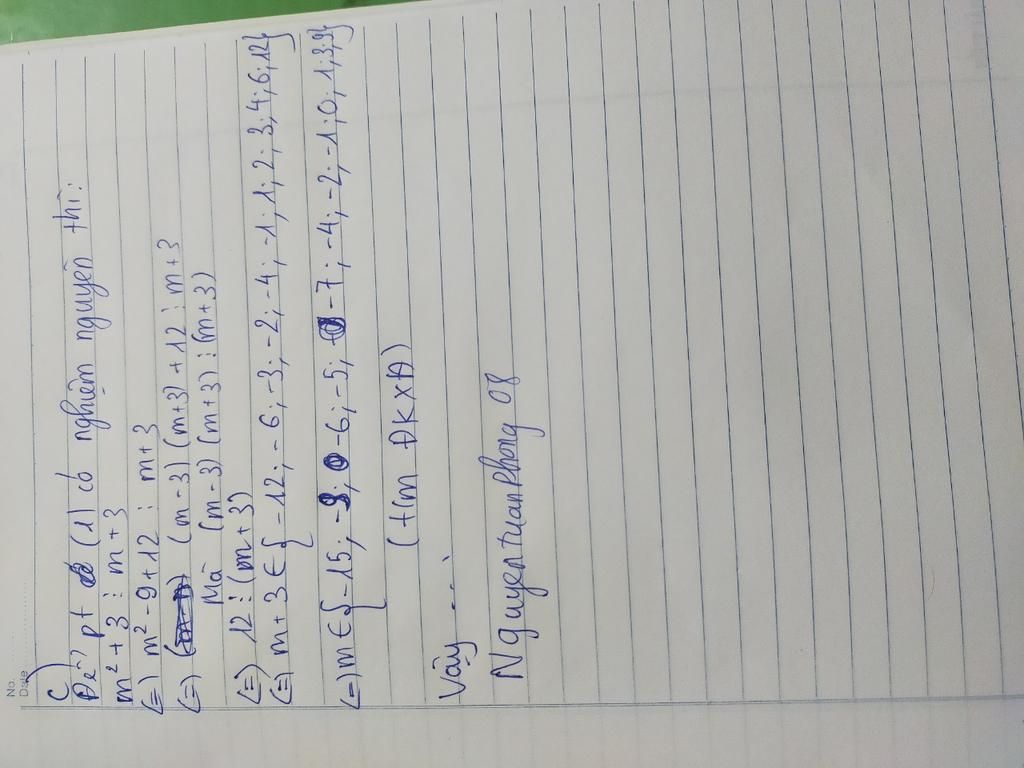 No.
Date
c)
Để pt (1) có nghiệm nguyên thì:
m² + 3 ⋮ m + 3
(=) m² - 9 + 12 ⋮ m + 3
(=) (m - 3) (m + 3) + 12 ⋮ m + 3
Mà (m - 3) (m + 3) ⋮ (m + 3)
(=) 12 ⋮ (m + 3)
(=) m + 3 ∈ {-12; -6; -3; -2; -4; -1; 1; 2; 3; 4; 6; 12}
(=) m ∈ {-15; -9; -6; -5; -7; -4; -2; -1; 0; 1; 3; 9}
(tm ĐKXĐ)
Vậy ...
Nguyentuanphong 08